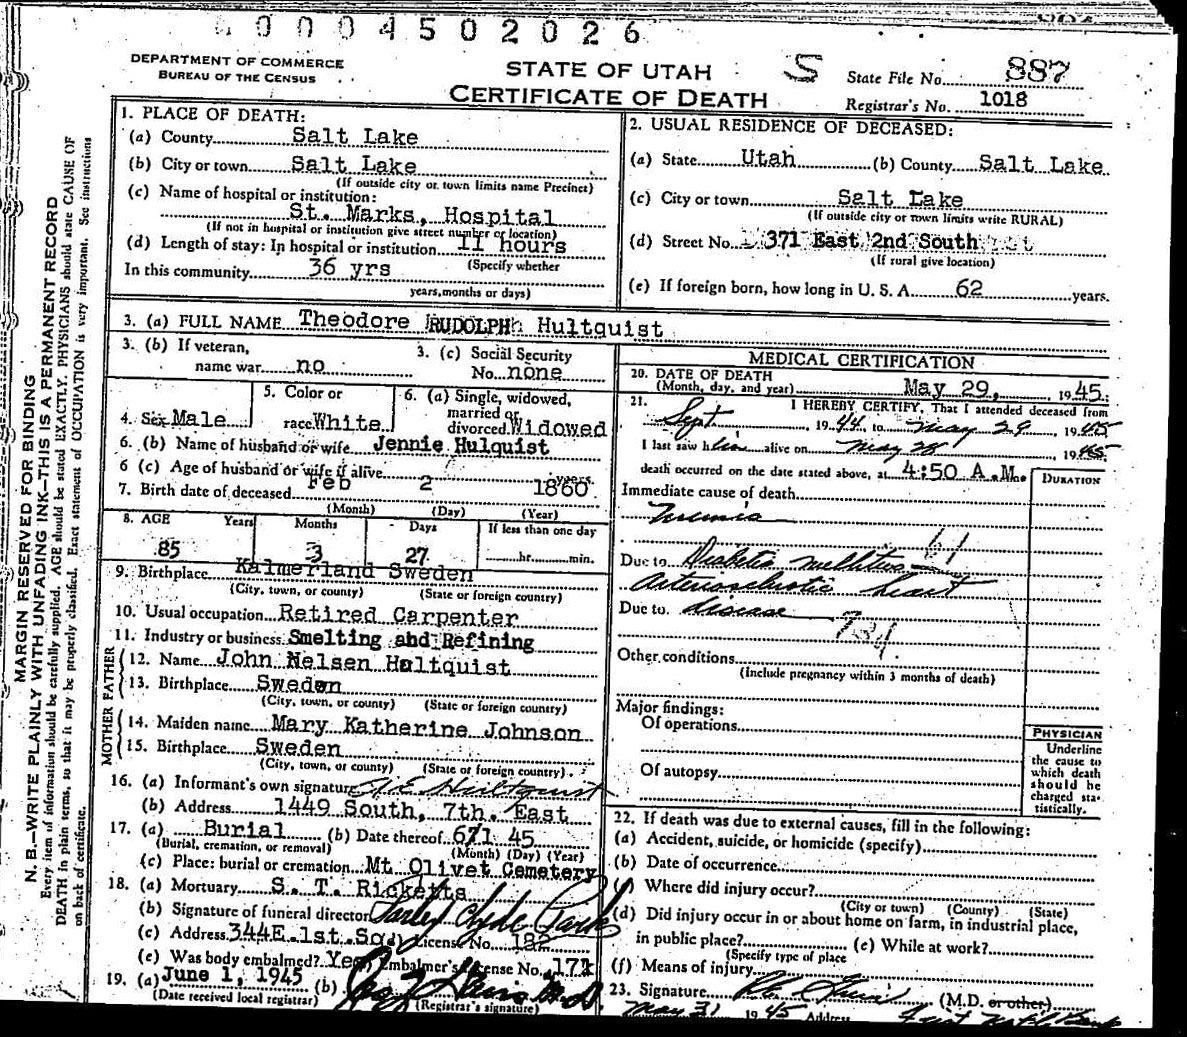 0004502026
DEPARTMENT OF COMMERCE
BUREAU OF THE CENSUS
STATE OF UTAH
CERTIFICATE OF DEATH
S
State File No. 887
Registrar's No. 1018
MARGIN RESERVED FOR BINDING
N. B.—WRITE PLAINLY WITH UNFADING INK—THIS IS A PERMANENT RECORD
Every item of information should be carefully supplied. AGE should be stated EXACTLY. PHYSICIANS should state CAUSE OF
DEATH in plain terms, so that it may be properly classified. Exact statement of OCCUPATION is very important. See instructions
on back of certificate.
1. PLACE OF DEATH:
(a) County Salt Lake
(b) City or town Salt Lake
(If outside city or town limits name Precinct)
(c) Name of hospital or institution:
St. Marks, Hospital
(If not in hospital or institution give street number or location)
(d) Length of stay: In hospital or institution 11 hours
(Specify whether
In this community 36 yrs
years, months or days)
2. USUAL RESIDENCE OF DECEASED:
(a) State Utah (b) County Salt Lake
(c) City or town Salt Lake
(If outside city or town limits write RURAL)
(d) Street No. 371 East 2nd South
(If rural give location)
(e) If foreign born, how long in U. S. A. 62 years.
3. (a) FULL NAME Theodore RUDOLPH Hultquist
3. (b) If veteran,
name war no
3. (c) Social Security
No. none
4. Sex Male
5. Color or
race White
6. (a) Single, widowed,
married or
divorced Widowed
6. (b) Name of husband or wife Jennie Hulquist
6 (c) Age of husband or wife if alive years.
7. Birth date of deceased Feb 2 1860
(Month) (Day) (Year)
8. AGE Years Months Days If less than one day
85 3 27 hr. min.
9. Birthplace Kalmerland Sweden
(City, town, or county) (State or foreign country)
10. Usual occupation Retired Carpenter
11. Industry or business Smelting and Refining
FATHER
12. Name John Nelsen Hultquist
13. Birthplace Sweden
(City, town, or county) (State or foreign country)
MOTHER
14. Maiden name Mary Katherine Johnson
15. Birthplace Sweden
(City, town, or county) (State or foreign country)
16. (a) Informant's own signature Hultquist
(b) Address 1449 South, 7th. East
17. (a) Burial (b) Date thereof 6/1 45
(Burial, cremation, or removal) (Month) (Day) (Year)
(c) Place: burial or cremation Mt Olivet Cemetery
18. (a) Mortuary S. T. Ricketts
(b) Signature of funeral director Parley Clyde Park
(c) Address 344E.1st.So. (d) License No. 182
(e) Was body embalmed? Yes Embalmer's License No. 171
19. (a) June 1, 1945 (b)
(Date received local registrar) (Registrar's signature)
MEDICAL CERTIFICATION
20. DATE OF DEATH
(Month, day, and year) May 29, 1945.
21. I HEREBY CERTIFY, That I attended deceased from
Sept 1944 to May 29, 1945
I last saw him alive on May 28 1945
death occurred on the date stated above, at 4:50 A.M.
DURATION
Immediate cause of death
Uremia
61
Due to Diabetis mellitus
Arteriosclerotic heart
Due to disease
Other conditions
(Include pregnancy within 3 months of death)
Major findings:
Of operations
Of autopsy
PHYSICIAN
Underline
the cause to
which death
should be
charged sta-
tistically.
22. If death was due to external causes, fill in the following:
(a) Accident, suicide, or homicide (specify)
(b) Date of occurrence
(c) Where did injury occur?
(City or town) (County) (State)
(d) Did injury occur in or about home on farm, in industrial place,
in public place? (e) While at work?
(Specify type of place
(f) Means of injury
23. Signature (M.D. or other)
May 31 1945 Address